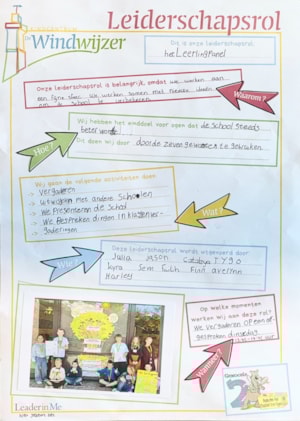 Leiderschapsrol
De Windwijzer
Dit is onze leiderschapsrol:
het Leerlingpanel
Onze leiderschapsrol is belangrijk, omdat we werken aan
een fijne sfeer. We werken samen met nieuwe ideeën
om de school te verbeteren
Waarom?
Wij hebben het einddoel voor ogen dat de school steeds
beter wordt
Dit doen wij door door de zeven gewoontes te gebruiken
Hoe?
Wij gaan de volgende activiteiten doen
-> Vergaderen
-> uitwisselen met andere Scholen
-> We Presenteren de School
-> We Bespreken dingen in klassenver-
-> gaderingen
Wat?
Deze leiderschapsrol wordt uitgevoerd door
Julia Jason Catalaya Tygo
Lyra Sem Faith Fian
Harley
Wie?
Op welke momenten
werken wij aan deze rol?
We vergaderen op een af
gesproken dinsdag
Wanneer?
Gewoonte
2
Leader in Me